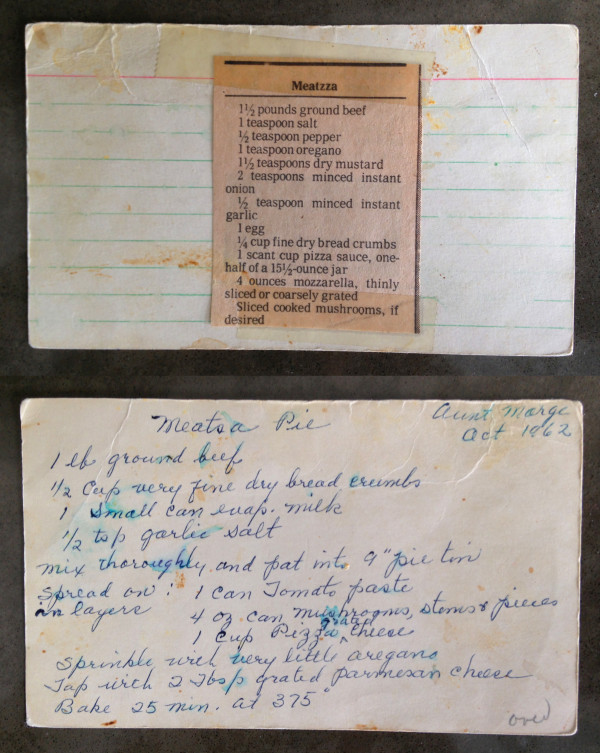 Meatzza
1½ pounds ground beef
1 teaspoon salt
½ teaspoon pepper
1 teaspoon oregano
1½ teaspoons dry mustard
2 teaspoons minced instant
onion
½ teaspoon minced instant
garlic
1 egg
¼ cup fine dry bread crumbs
1 scant cup pizza sauce, one-
half of a 15½-ounce jar
4 ounces mozzarella, thinly
sliced or coarsely grated
Sliced cooked mushrooms, if
desired
Aunt Marge
Meatsa Pie
Oct 1962
1 lb ground beef
1/2 Cup very fine dry bread crumbs
1 Small can evap. milk
1/2 tsp garlic salt
mix thoroughly and pat into 9" pie tin
Spread on : 1 can Tomato paste
in layers
4 oz. can mushrooms, stems & pieces
grated
1 Cup Pizza ^ cheese
Sprinkle with very little oregano
Top with 2 Tbsp grated parmesan cheese
Bake 25 min. at 375°
over